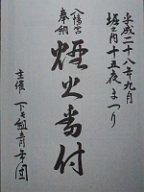 平成二十八年九月
堀之内十五夜まつり
八幡宮
奉納
煙火番付
主催
下モ組青年団